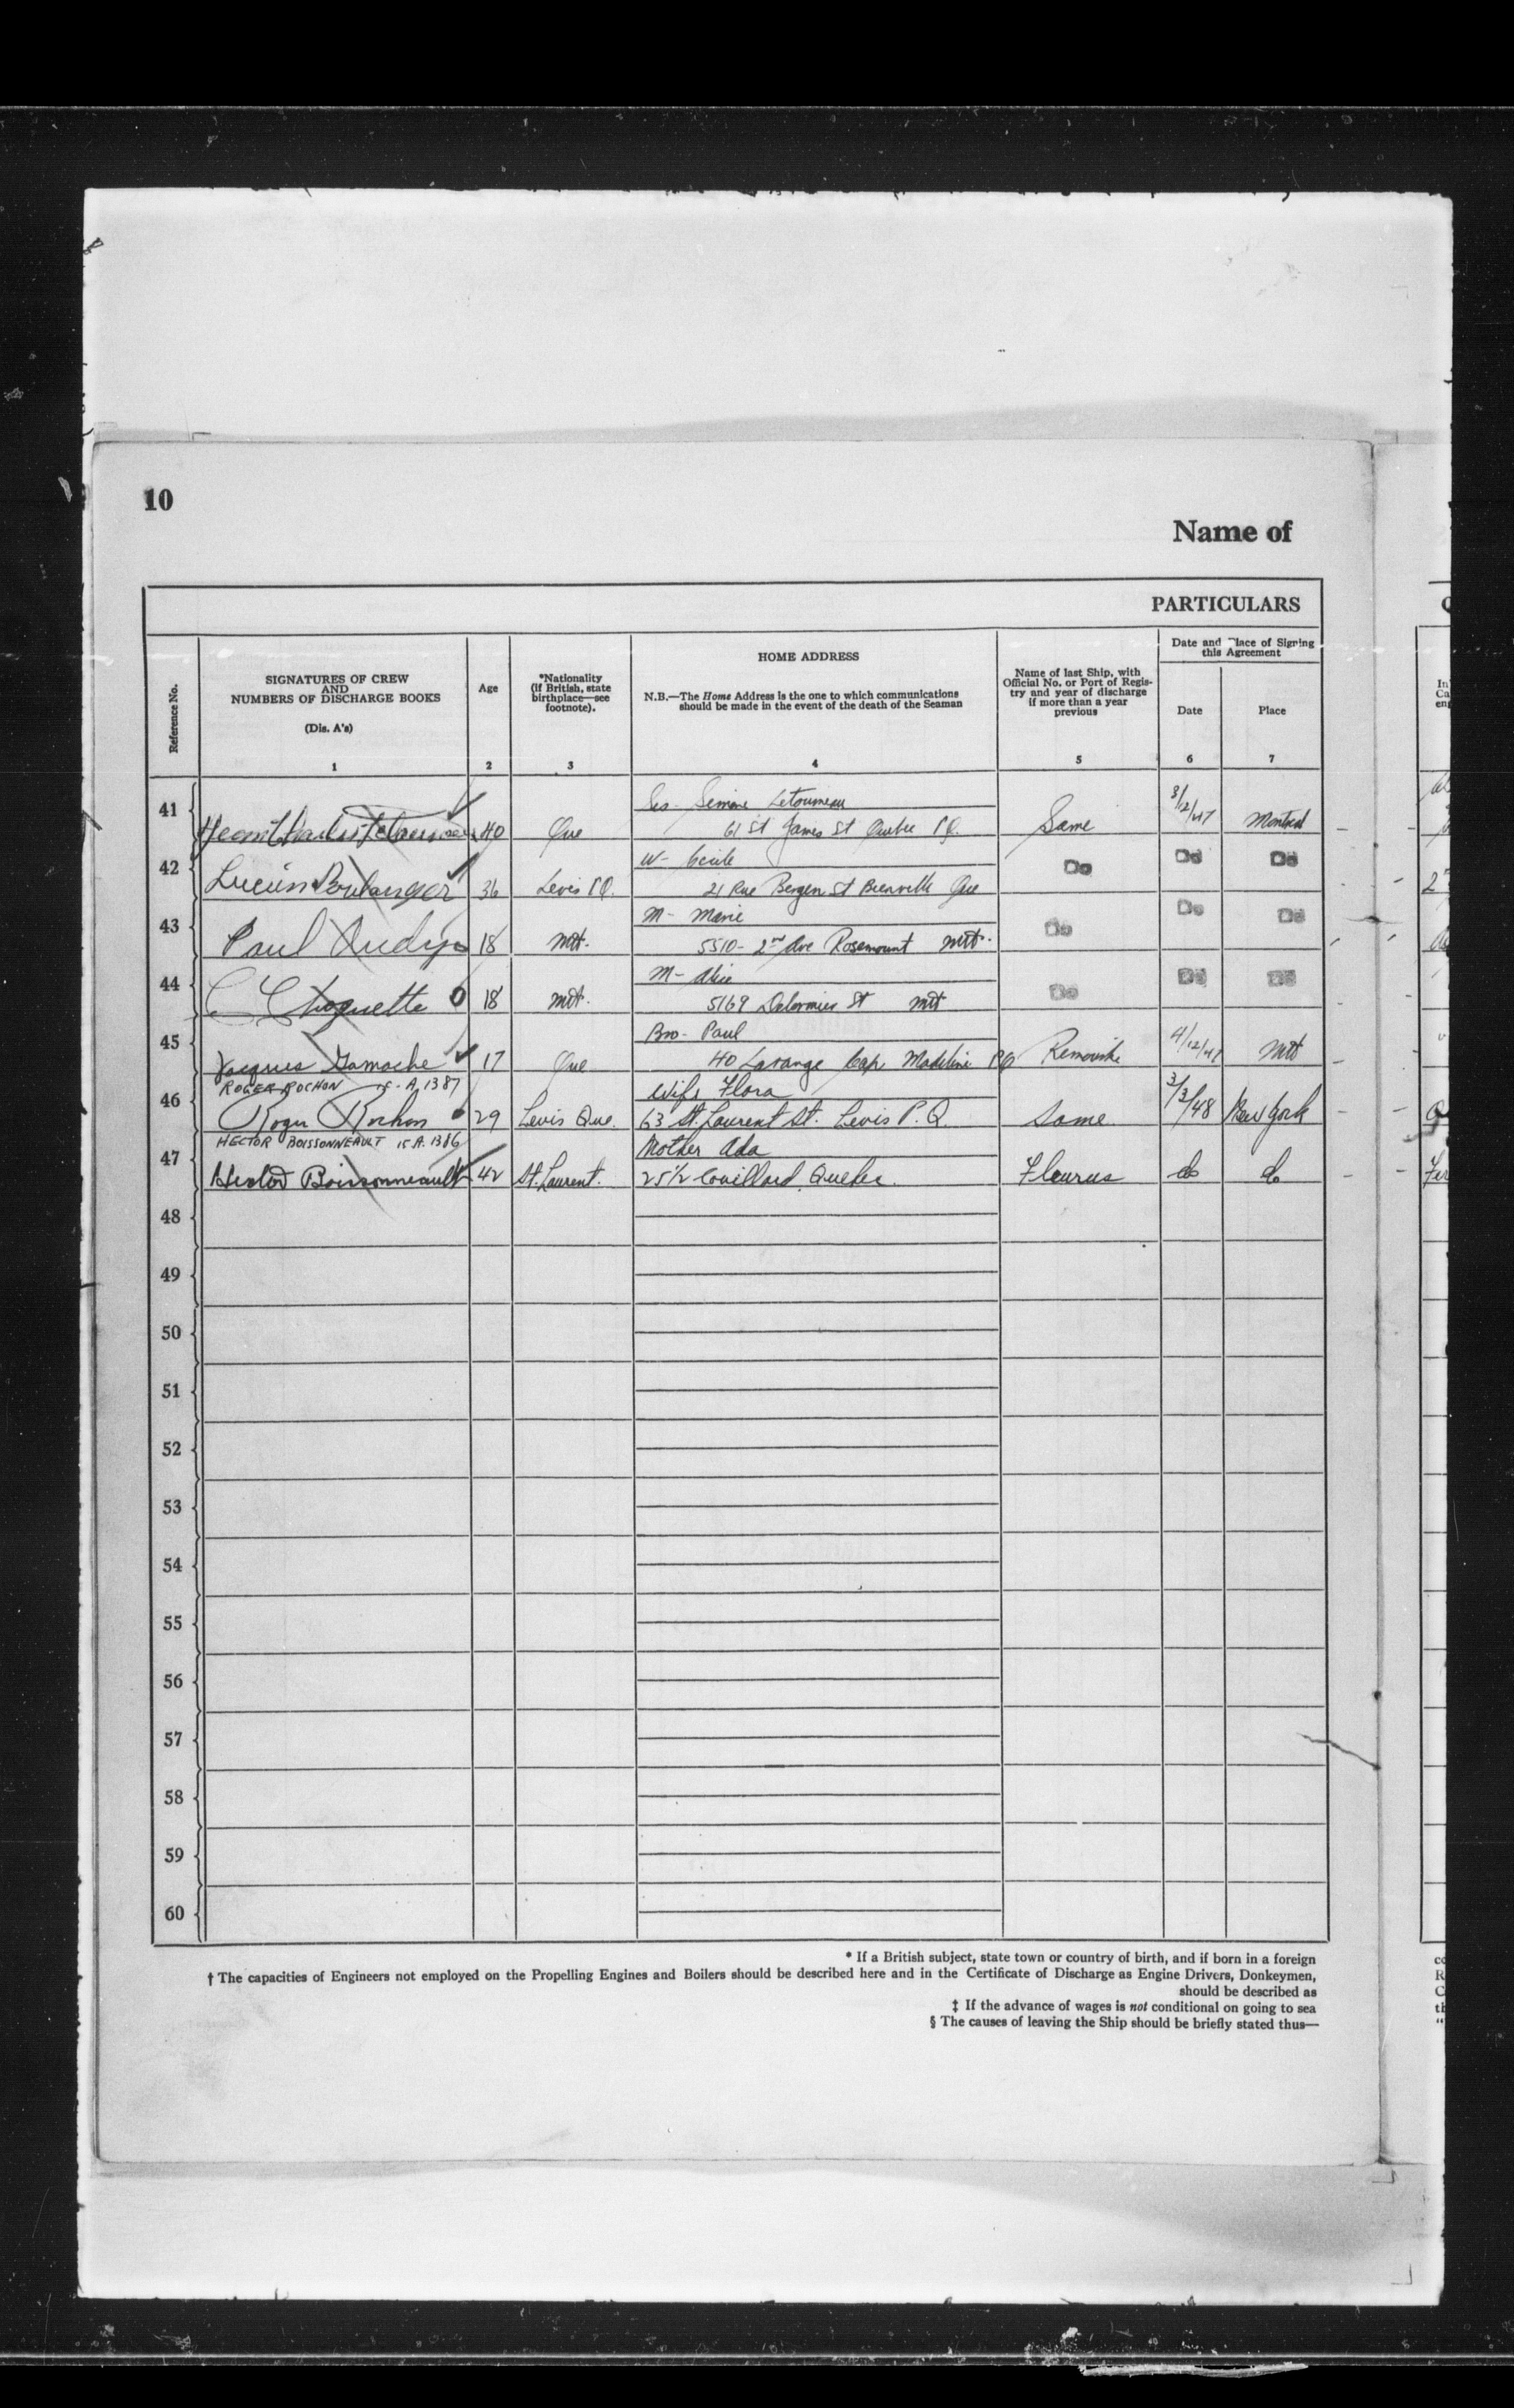 10
Name of
PARTICULARS
Reference No.
SIGNATURES OF CREW
AND
NUMBERS OF DISCHARGE BOOKS
(Dis. A's)
1
Age
2
*Nationality
(if British, state
birthplace—see
footnote).
3
HOME ADDRESS
N.B.—The Home Address is the one to which communications
should be made in the event of the death of the Seaman
4
Name of last Ship, with
Official No. or Port of Regis-
try and year of discharge
if more than a year
previous
5
Date and Place of Signing
this Agreement
Date
6
Place
7
41 40 Que Sis - Simone Letourneau
61 St James St Quebec P.Q. Same 3/12/47 Montreal
42 Lucien Boulanger 36 Levis P.Q. W- Cecile
21 Rue Bergen St Bienville Que Do Do Do
43 Paul Audy 18 Mtl. M- Marie
5510 - 2nd Ave Rosemount Mtl. Do Do Do
44 Choquette 18 Mtl. M- Alice
5169 Delormier St Mtl Do Do Do
45 Jacques Gamache 17 Que Bro- Paul
40 Lavange Cap Madeline P.Q Rimouski 4/12/47 Mtl
ROGER ROCHON 15-A.1387
46 Roger Rochon 29 Levis Que. Wife Flora
63 St. Laurent St. Levis P.Q. Same 3/3/48 New York
HECTOR BOISSONNEAULT 15.A.1386
47 Hector Boissonneault 42 St. Laurent. Mother Ada
25½ Couillard Quebec. Fleurus do do
48
49
50
51
52
53
54
55
56
57
58
59
60
* If a British subject, state town or country of birth, and if born in a foreign
† The capacities of Engineers not employed on the Propelling Engines and Boilers should be described here and in the Certificate of Discharge as Engine Drivers, Donkeymen,
should be described as
‡ If the advance of wages is not conditional on going to sea
§ The causes of leaving the Ship should be briefly stated thus—